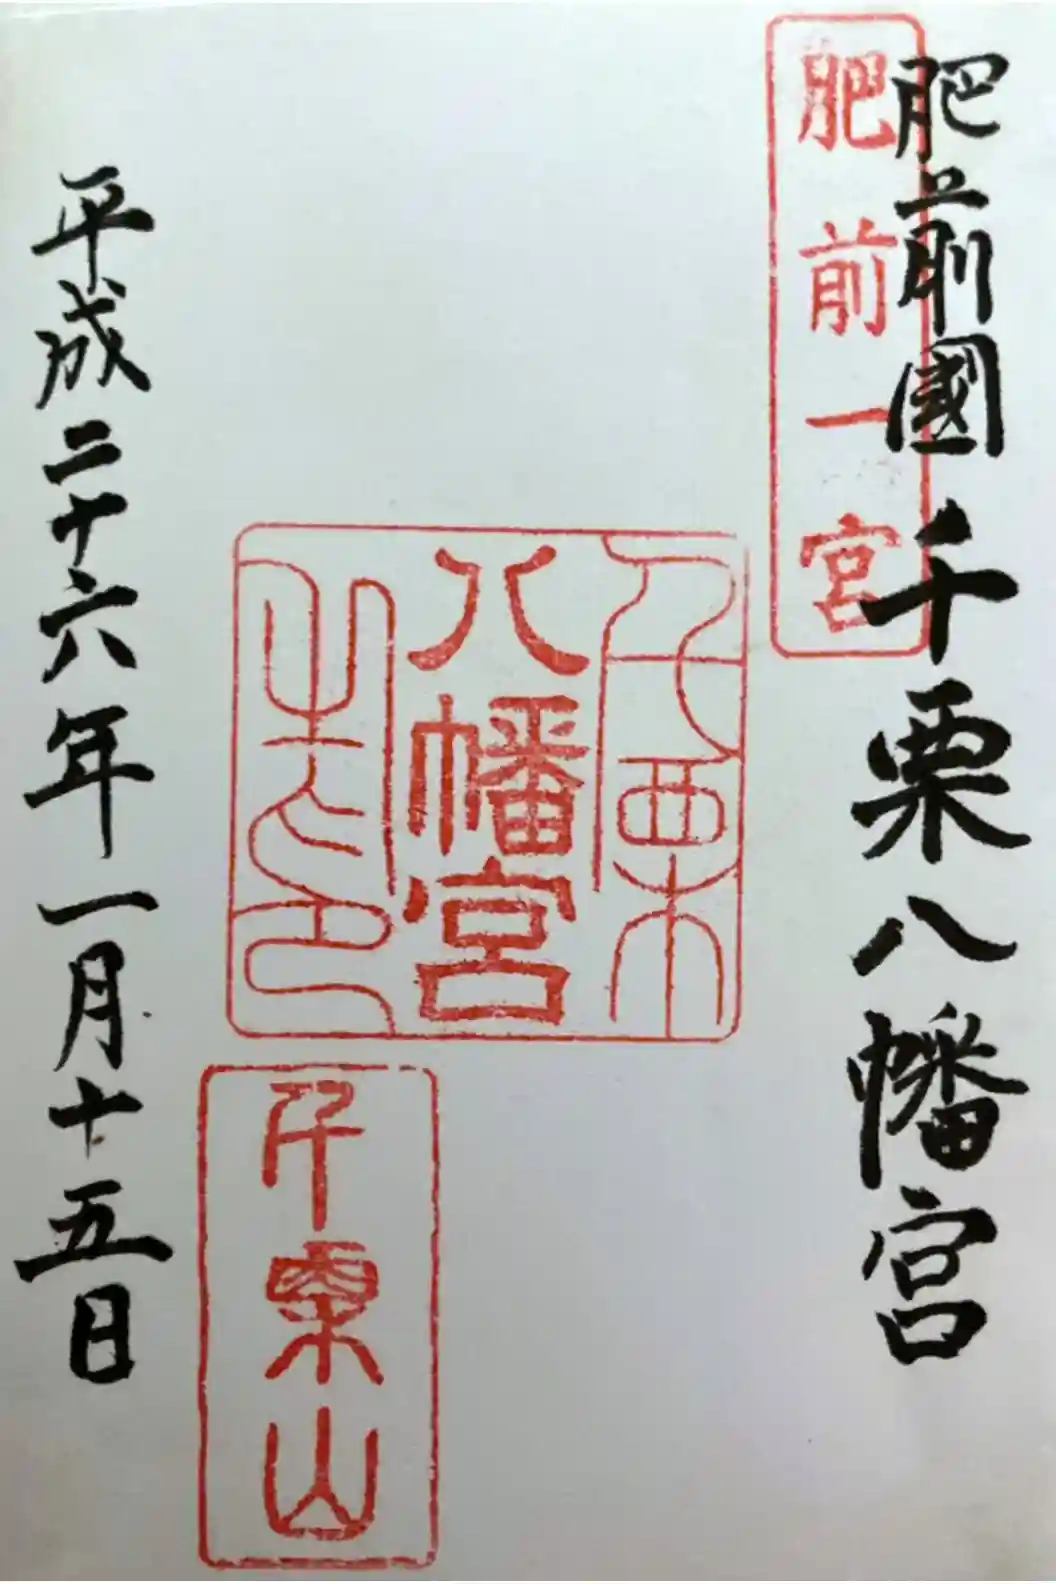 肥前國 千栗八幡宮
肥前一宮
千栗
八幡宮
之印
千栗山
平成二十六年一月十五日